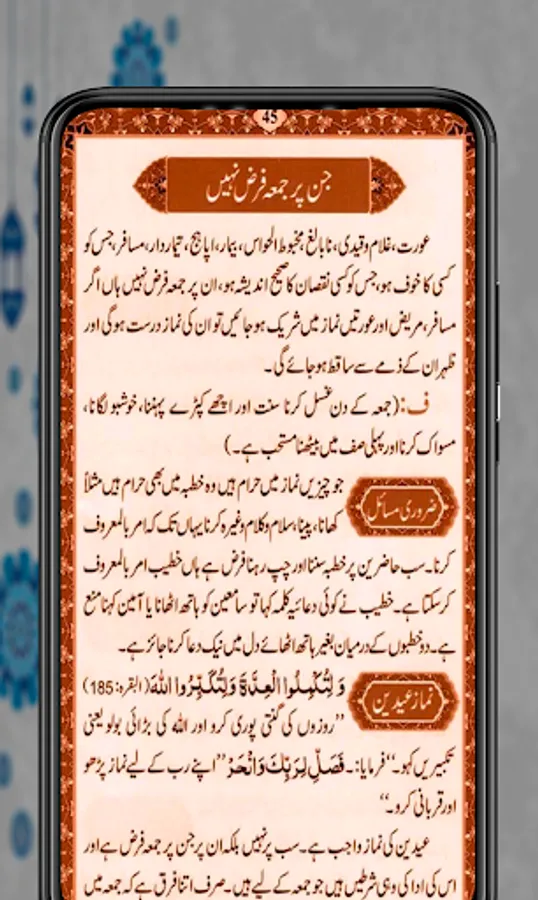 45
جن پر جمعہ فرض نہیں
عورت، غلام و قیدی، نابالغ، مخبوط الحواس، بیمار، اپاہج، تیماردار، مسافر، جس کو
کسی کا خوف ہو، جس کو کسی نقصان کا صحیح اندیشہ ہو، ان پر جمعہ فرض نہیں ہاں اگر
مسافر، مریض اور عورتیں نماز میں شریک ہو جائیں تو ان کی نماز درست ہو گی اور
ظہر ان کے ذمے سے ساقط ہو جائے گی۔
ف: (جمعہ کے دن غسل کرنا سنت اور اچھے کپڑے پہننا، خوشبو لگانا،
مسواک کرنا اور پہلی صف میں بیٹھنا مستحب ہے۔)
ضروری مسائل
جو چیزیں نماز میں حرام ہیں وہ خطبہ میں بھی حرام ہیں مثلاً
کھانا، پینا، سلام و کلام وغیرہ کرنا یہاں تک کہ امر بالمعروف
کرنا۔ سب حاضرین پر خطبہ سننا اور چپ رہنا فرض ہے ہاں خطیب امر بالمعروف
کر سکتا ہے۔ خطیب نے کوئی دعائیہ کلمہ کہا تو سامعین کو ہاتھ اٹھانا یا آمین کہنا منع
ہے۔ دو خطبوں کے درمیان بغیر ہاتھ اٹھائے دل میں نیک دعا کرنا جائز ہے۔
نماز عیدین
وَ لِتُكْمِلُوا الْعِدَّةَ وَ لِتُكَبِّرُوا اللهَ (البقرہ:185)
’’روزوں کی گنتی پوری کرو اور اللہ کی بڑائی بولو یعنی
تکبیریں کہو۔‘‘ فرمایا:۔ فَصَلِّ لِرَبِّكَ وَانْحَرْ ’’اپنے رب کے لیے نماز پڑھو
اور قربانی کرو۔‘‘
عیدین کی نماز واجب ہے۔ سب پر نہیں بلکہ ان پر جن پر جمعہ فرض ہے اور
اس کی ادا کی وہی شرطیں ہیں جو جمعہ کے لیے ہیں۔ صرف اتنا فرق ہے کہ جمعہ میں